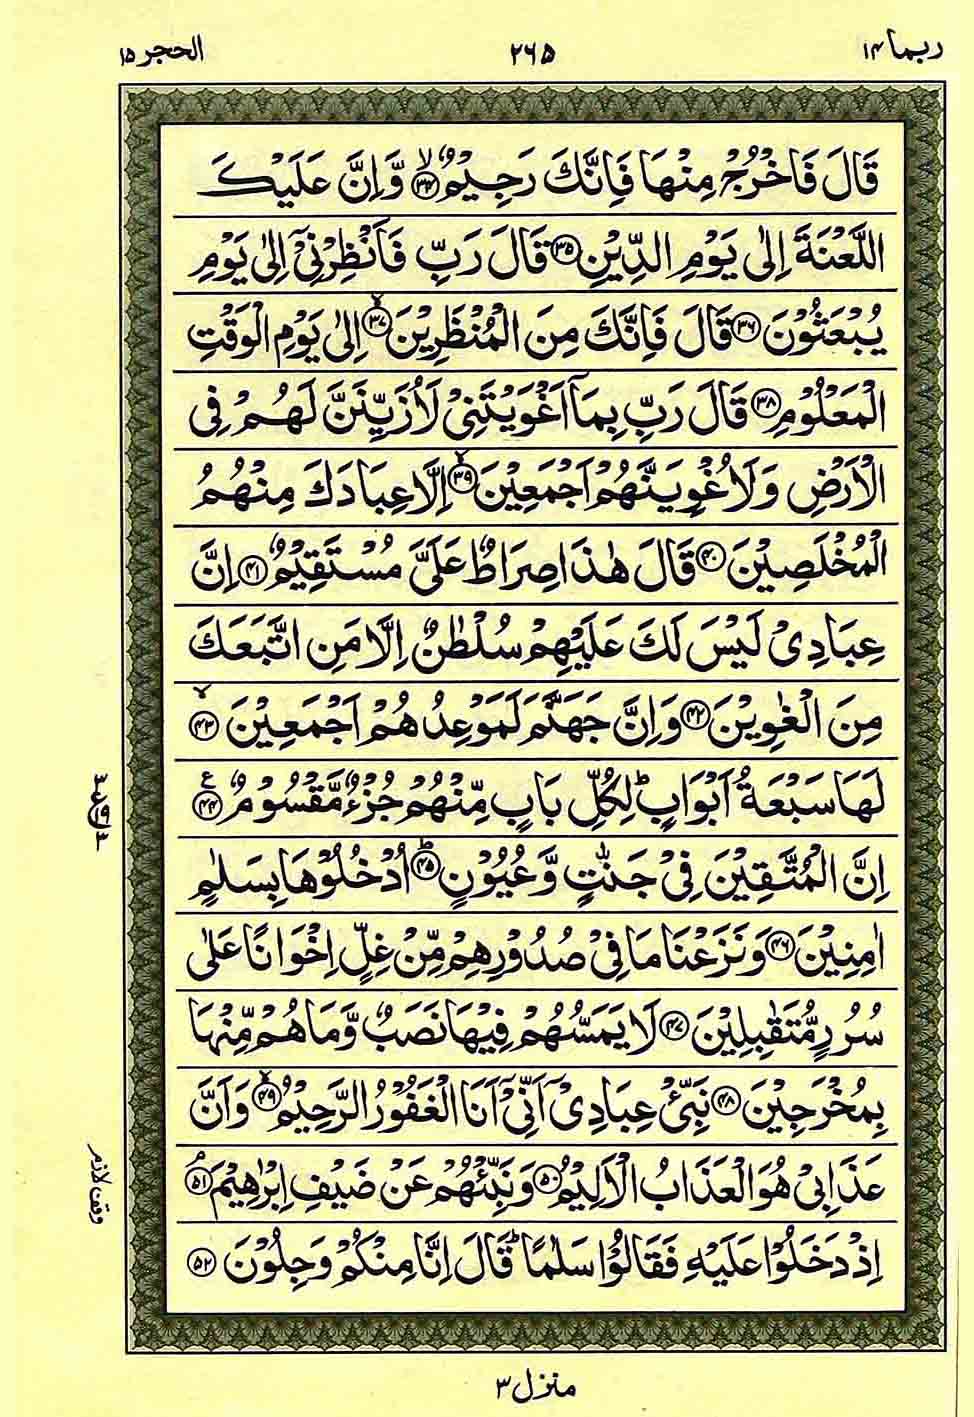 ربما ١٤ ٢٦٥ الحجر ١٥
قَالَ فَاخْرُجْ مِنْهَا فَاِنَّكَ رَجِيْمٌ ۙ﴿۳۴﴾ وَّاِنَّ عَلَيْكَ
اللَّعْنَةَ اِلٰى يَوْمِ الدِّيْنِ ﴿۳۵﴾ قَالَ رَبِّ فَاَنْظِرْنِيْۤ اِلٰى يَوْمِ
يُبْعَثُوْنَ ﴿۳۶﴾ قَالَ فَاِنَّكَ مِنَ الْمُنْظَرِيْنَ ۙ﴿۳۷﴾ اِلٰى يَوْمِ الْوَقْتِ
الْمَعْلُوْمِ ﴿۳۸﴾ قَالَ رَبِّ بِمَاۤ اَغْوَيْتَنِيْ لَاُزَيِّنَنَّ لَهُمْ فِى
الْاَرْضِ وَلَاُغْوِيَنَّهُمْ اَجْمَعِيْنَ ۙ﴿۳۹﴾ اِلَّا عِبَادَكَ مِنْهُمُ
الْمُخْلَصِيْنَ ﴿۴۰﴾ قَالَ هٰذَا صِرَاطٌ عَلَيَّ مُسْتَقِيْمٌ ﴿۴۱﴾ اِنَّ
عِبَادِيْ لَيْسَ لَكَ عَلَيْهِمْ سُلْطٰنٌ اِلَّا مَنِ اتَّبَعَكَ
مِنَ الْغٰوِيْنَ ﴿۴۲﴾ وَاِنَّ جَهَنَّمَ لَمَوْعِدُهُمْ اَجْمَعِيْنَ ۙ﴿۴۳﴾
لَهَا سَبْعَةُ اَبْوَابٍ ؕ لِكُلِّ بَابٍ مِّنْهُمْ جُزْءٌ مَّقْسُوْمٌ ﴿۴۴﴾ ع
اِنَّ الْمُتَّقِيْنَ فِيْ جَنّٰتٍ وَّعُيُوْنٍ ؕ﴿۴۵﴾ اُدْخُلُوْهَا بِسَلٰمٍ
اٰمِنِيْنَ ﴿۴۶﴾ وَنَزَعْنَا مَا فِيْ صُدُوْرِهِمْ مِّنْ غِلٍّ اِخْوَانًا عَلٰى
سُرُرٍ مُّتَقٰبِلِيْنَ ﴿۴۷﴾ لَا يَمَسُّهُمْ فِيْهَا نَصَبٌ وَّمَا هُمْ مِّنْهَا
بِمُخْرَجِيْنَ ﴿۴۸﴾ نَبِّئْ عِبَادِيْۤ اَنِّيْۤ اَنَا الْغَفُوْرُ الرَّحِيْمُ ۙ﴿۴۹﴾ وَاَنَّ
عَذَابِيْ هُوَ الْعَذَابُ الْاَلِيْمُ ﴿۵۰﴾ وَنَبِّئْهُمْ عَنْ ضَيْفِ اِبْرٰهِيْمَ ۘ﴿۵۱﴾
اِذْ دَخَلُوْا عَلَيْهِ فَقَالُوْا سَلٰمًا ؕ قَالَ اِنَّا مِنْكُمْ وَجِلُوْنَ ﴿۵۲﴾
ع
وقف لازم
منزل ٣